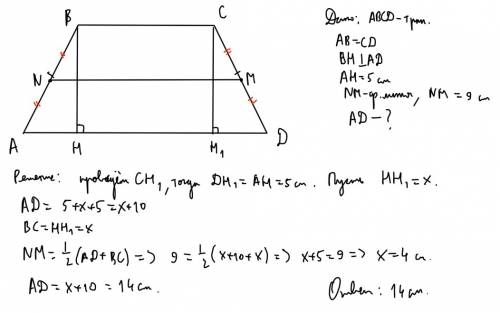 B C
N M
A H M₁ D
Дано: ABCD – трап.
AB = CD
BH ⊥ AD
AH = 5 см
NM – ср. линия, NM = 9 см
AD – ?
Решение: проведём CH₁, тогда DH₁ = AH = 5 см. Пусть HH₁ = x.
AD = 5 + x + 5 = x + 10
BC = HH₁ = x
NM = 1/2 (AD + BC) => 9 = 1/2 (x + 10 + x) => x + 5 = 9 => x = 4 см.
AD = x + 10 = 14 см.
Ответ: 14 см.